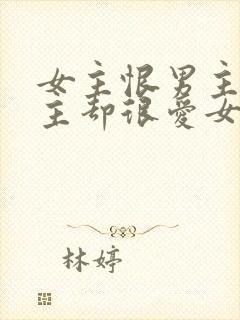 女主恨男主
主却很爱女
林婷